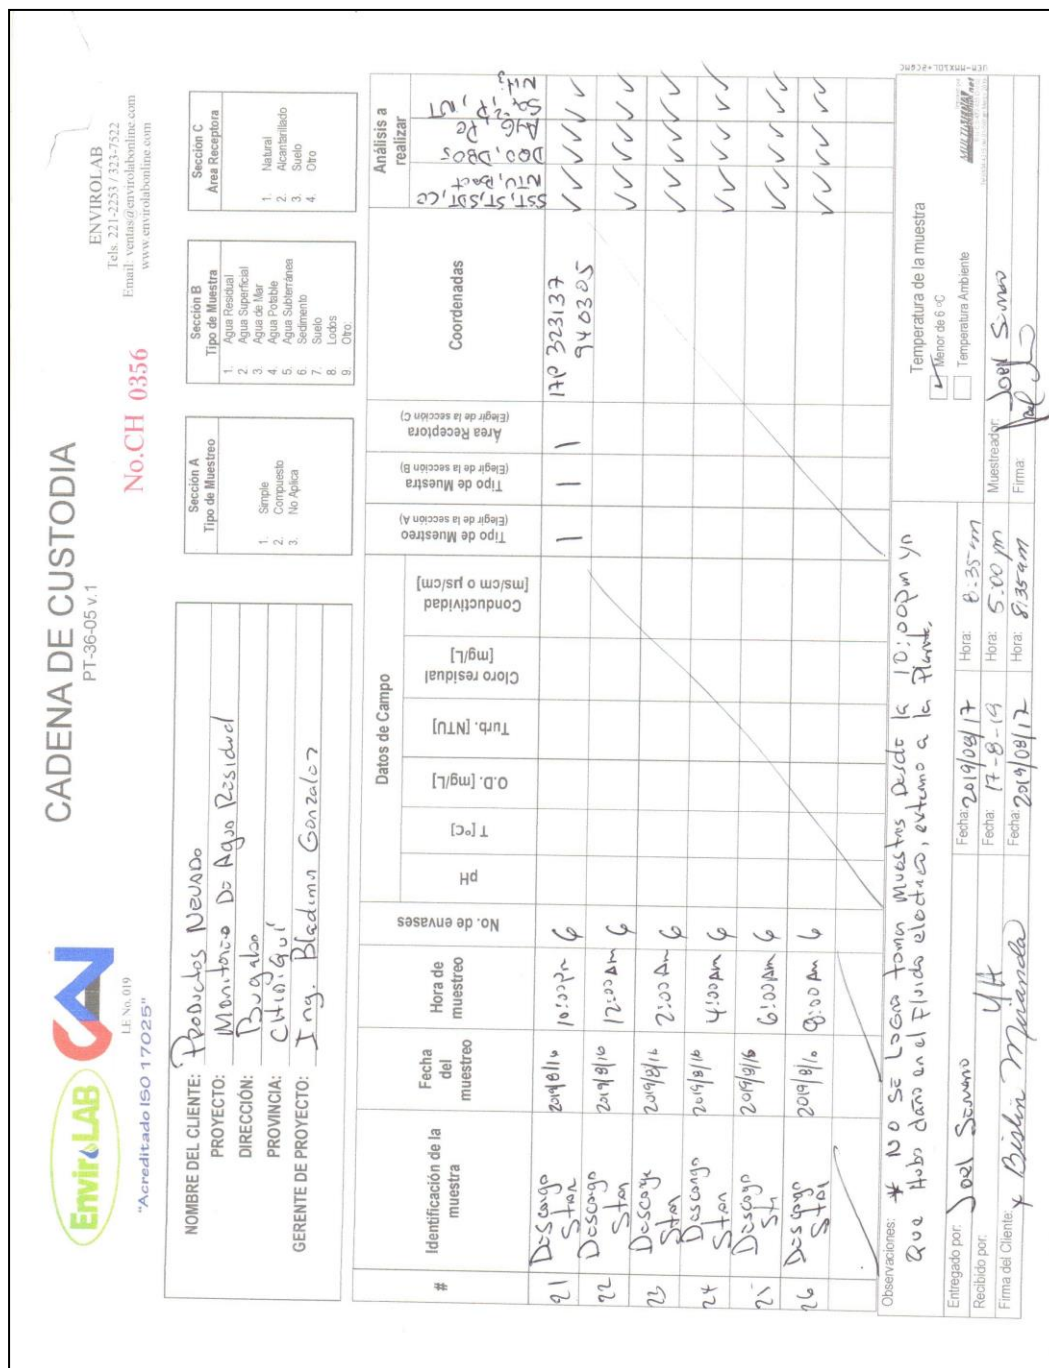 EnviroLAB
CNA
LE No. 019
"Acreditado ISO 17025"
CADENA DE CUSTODIA
PT-36-05 v.1
No.CH 0356
ENVIROLAB
Tels. 221-2253 / 323-7522
Email: ventas@envirolabonline.com
www.envirolabonline.com
NOMBRE DEL CLIENTE: Productos Nevado
PROYECTO: Monitoreo De Agua Residual
DIRECCIÓN: Bugaba
PROVINCIA: CHiriquí
GERENTE DE PROYECTO: Ing. Bladimir Gonzalez
Sección A
Tipo de Muestreo
1. Simple
2. Compuesto
3. No Aplica
Sección B
Tipo de Muestra
1. Agua Residual
2. Agua Superficial
3. Agua de Mar
4. Agua Potable
5. Agua Subterránea
6. Sedimento
7. Suelo
8. Lodos
9. Otro:
Sección C
Área Receptora
1. Natural
2. Alcantarillado
3. Suelo
4. Otro
# Identificación de la muestra Fecha del muestreo Hora de muestreo No. de envases
Datos de Campo
pH T [°C] O.D. [mg/L] Turb. [NTU] Cloro residual [mg/L] Conductividad [ms/cm o µs/cm]
Tipo de Muestreo (Elegir de la sección A)
Tipo de Muestra (Elegir de la sección B)
Área Receptora (Elegir de la sección C)
Coordenadas
Análisis a realizar
SST, ST, SDT, CC NTU, Bact
DQO, DBO5
AyG, Pc
P, NT
NH3
21 Descarga 2019/8/16 10:00 Pm 6 1 1 1 17P 323137 ✓ ✓ ✓ ✓ ✓
940305
22 Descarga 2019/8/16 12:00 Am 6 ✓ ✓ ✓ ✓ ✓
23 Descarga 2019/8/16 2:00 Am 6 ✓ ✓ ✓ ✓ ✓
24 Descarga 2019/8/16 4:00 Am 6 ✓ ✓ ✓ ✓ ✓
25 Descarga 2019/8/16 6:00 Am 6 ✓ ✓ ✓ ✓ ✓
26 Descarga 2019/8/16 8:00 Am 6 ✓ ✓ ✓ ✓ ✓
Observaciones: * No se Logra tomar Muestras Desde la 10:00pm ya
que Hubo daño en el Fluido electrico, externo a la Planta.
Entregado por: Joel Fecha: 2019/08/17 Hora: 8:35 am
Recibido por: YH Fecha: 17-8-19 Hora: 5:00 pm
Firma del Cliente: x Bislin Miranda Fecha: 2019/08/17 Hora: 8:35 am
Temperatura de la muestra
✓ Menor de 6 °C
Temperatura Ambiente
Muestreador: Joel
Firma: